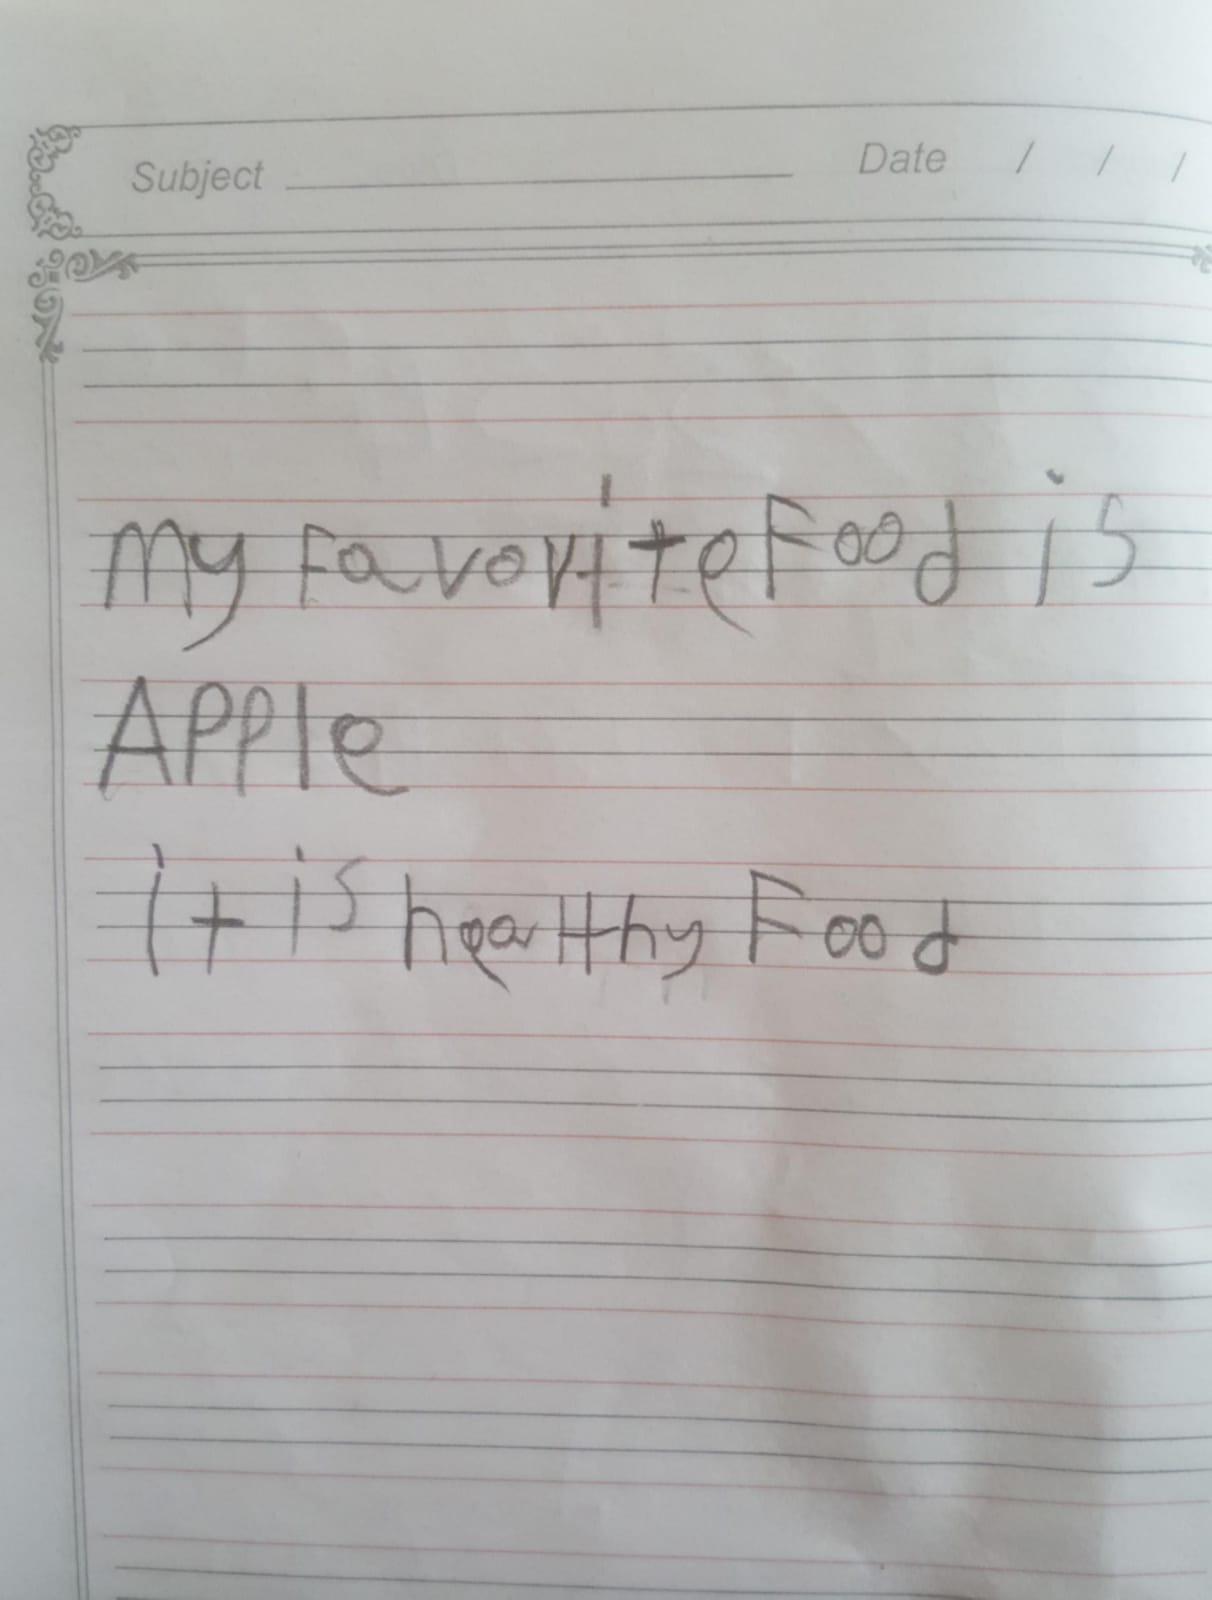 Subject Date / / /
My Favorite Food is
APPle
it is healthy Food